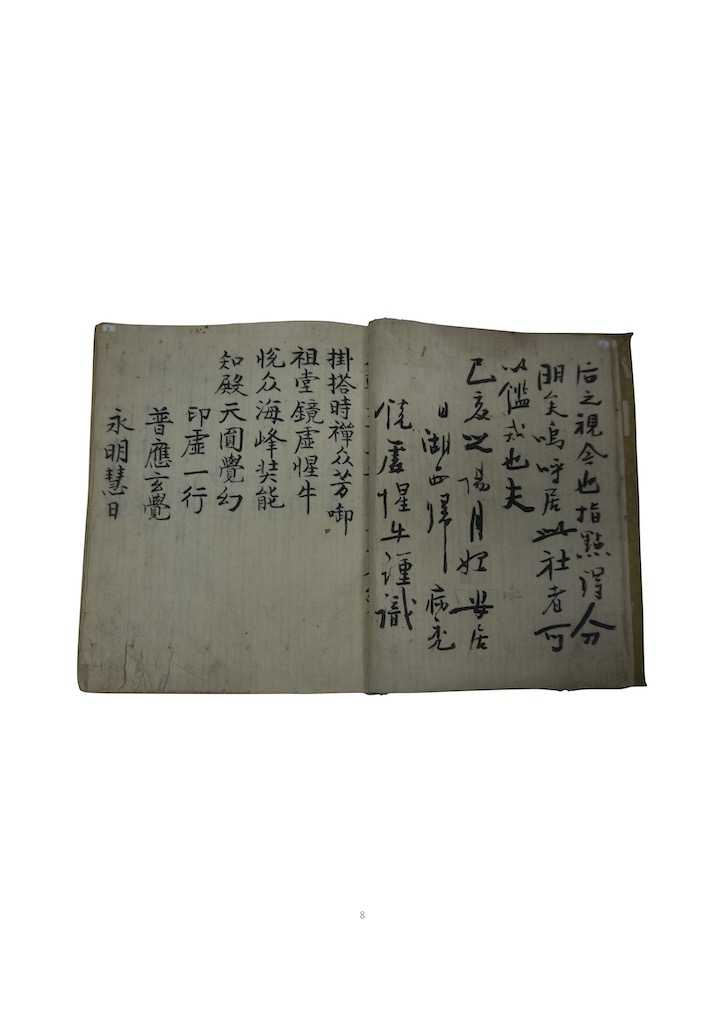 后之視今也指點得分
明矣嗚呼居此社者可
以鑑戒也夫
己亥之陽月安居
日湖西歸病禿
鏡虛惺牛謹識
掛搭時禪众芳啣
祖堂鏡虛惺牛
悅众海峰奘能
知殿天圓覺幻
印虛一行
普應玄覺
永明慧日
8